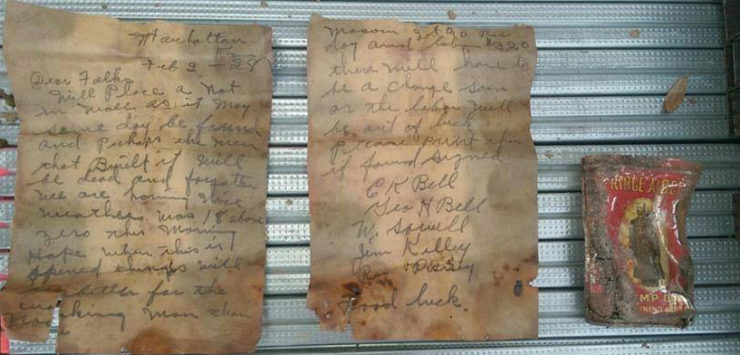 Manhattan
Feb 2 - 28
Dear Folks
Will Place a Not
in wall as it may
some day be found
and Perhaps the men
that Built it will
be dead and forgotten
we are having nice
weather was 18 above
zero this morning
Hope when this is
opened things will
be better for the
working man than
now
mason get 90 Per
day and labor
there will have to
be a change soon
or the labor will
be out of luck
Please print this
if found signed
C K Bell
Geo H Bell
W. Sowell
Jim Killey
Good luck
PRINCE ALBE
MP C